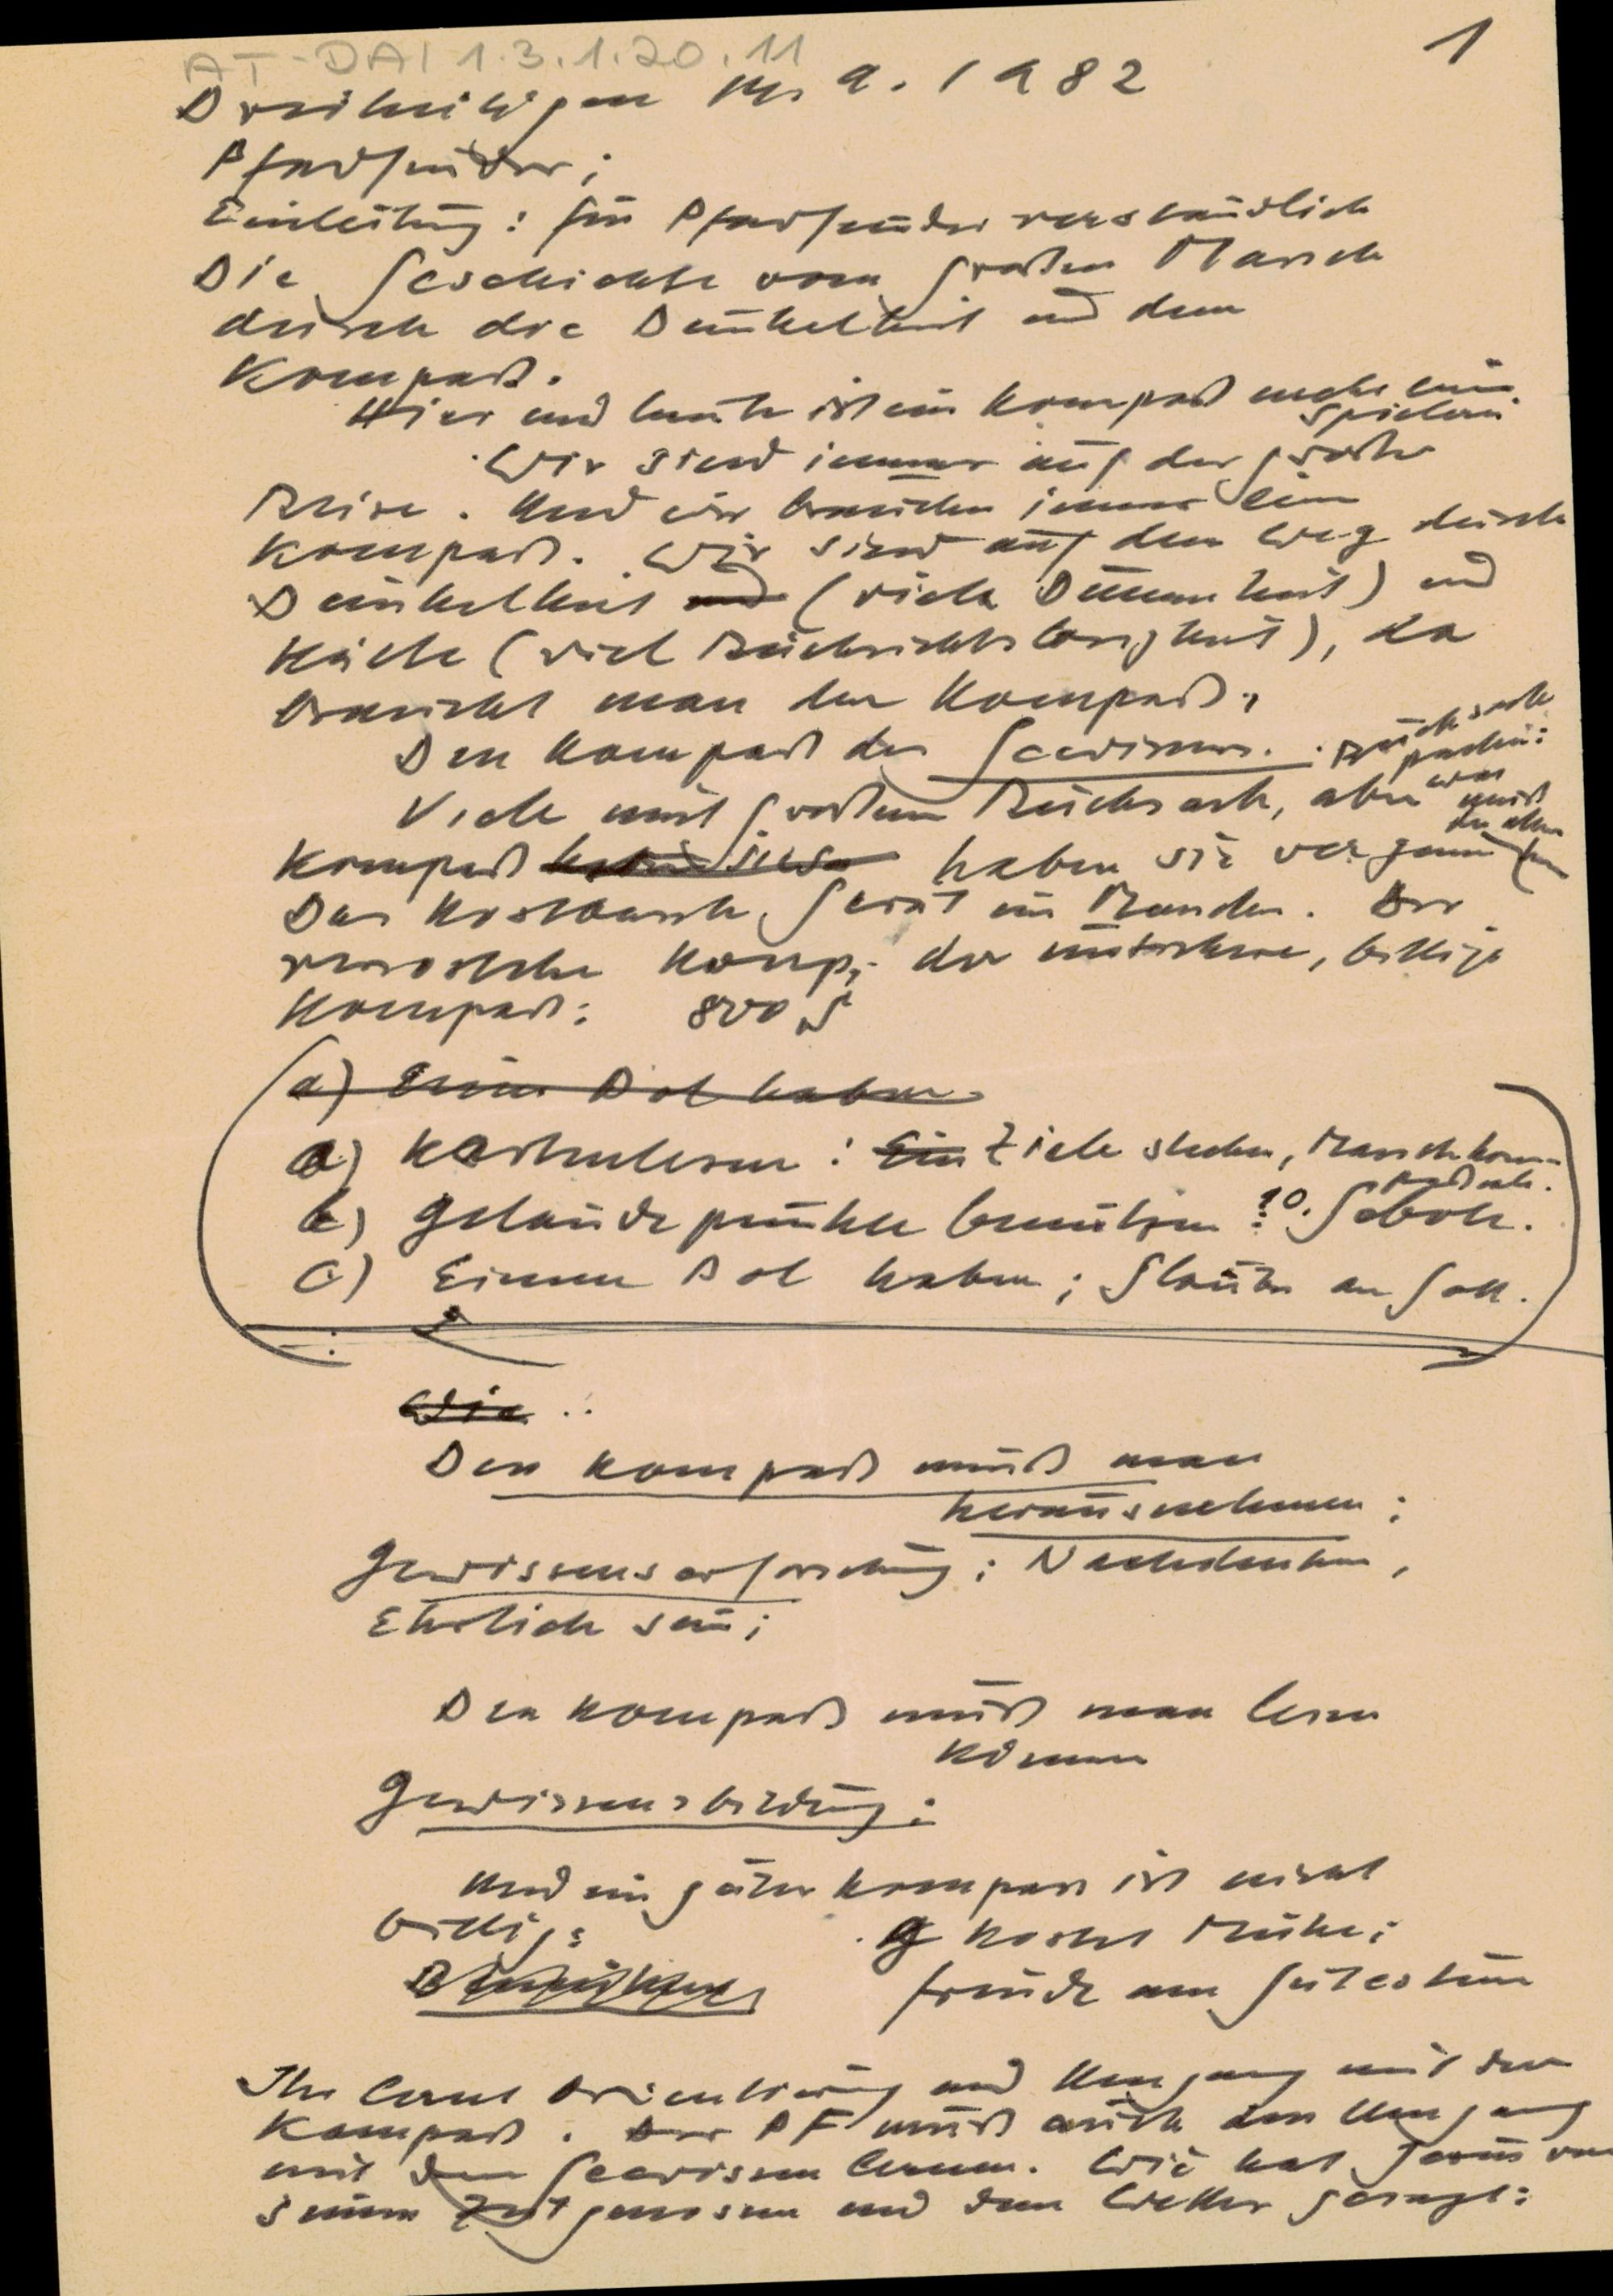 AT-DAI 1.3.1.20.11
1
Dreiheiligen 9. 1982
Pfadfinder;
Einleitung: für Pfadfinder verständlich
Die Geschichte vom großen Marsch
durch die Dunkelheit und dem
Kompaß.
Hier und heute ist ein Kompaß mehr eine
Spielerei
Wir sind immer auf der großen
Reise. Und wir brauchen immer ein
Kompaß. Wir sind auf dem Weg durch
Dunkelheit und (viele Dummheit) und
Kälte (viel Rücksichtslosigkeit), da
braucht man den Kompaß,
Den Kompaß des Gewissens. Rucksack
packen:
Viele mit großem Rucksack, aber was
muß
Kompaß haben sie vergessen
Das kostbarste Gerät im Dunkeln. Der
verrostete Komp, der unbrauchbare, billige
Kompaß: 800 S
a) Einen Pol haben
a) Kartenlesen: Ein Ziele stecken, Marschkom-
paß
b) Geländepunkte benützen: 10 Gebote.
c) Einen Pol haben; Glaube an Gott.
Wie
Den Kompaß muß man
herausnehmen;
Gewissenserforschung; Nachdenken,
Ehrlich sein;
Den Kompaß muß man lesen
können
Gewissensbildung:
Und ein guter Kompass ist nicht
billig: kostet Mühe;
Freude am Gutes tun
Ihr lernt Orientierung und Umgang mit dem
Kompaß. Der PF muß auch den Umgang
mit dem Gewissen lernen. Wie hat Jesus von
seinen Zeitgenossen und dem Wetter gesagt: